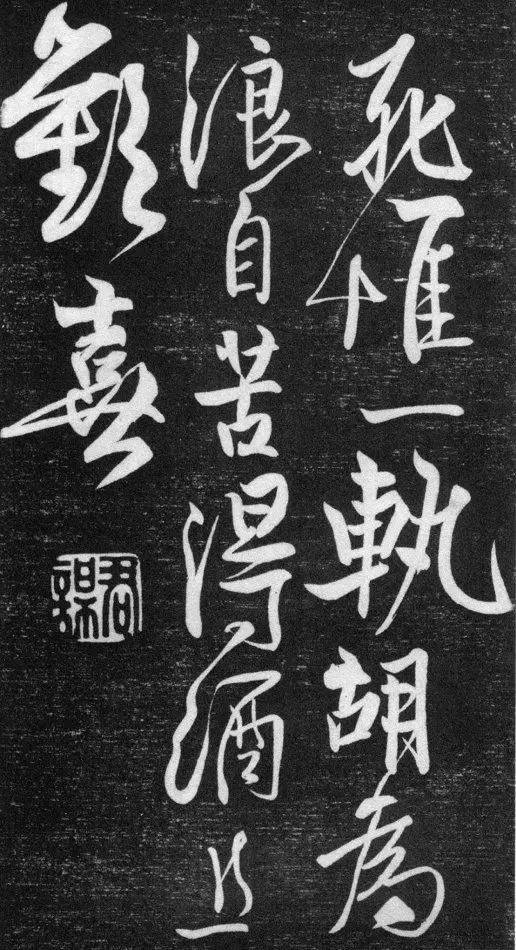 死惟一軌胡為
浪自苦得酒且
歡喜
君謨